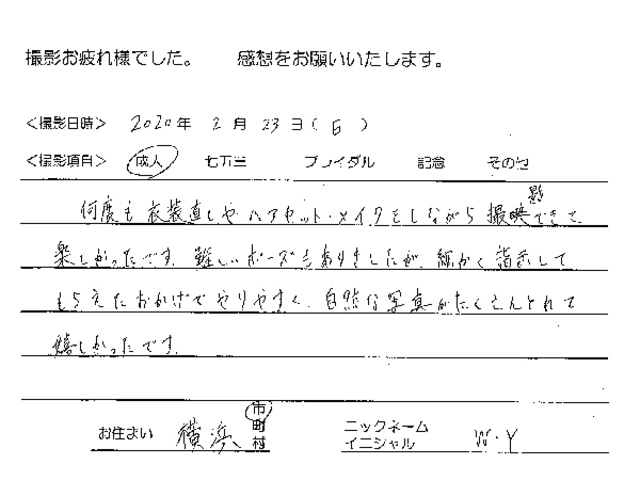 撮影お疲れ様でした。 感想をお願いいたします。
<撮影日時> 2020年 2月 23日(日)
<撮影項目> 成人 七五三 ブライダル 記念 その他
何度も衣装直しやヘアセット・メイクをしながら撮影できて
楽しかったです。難しいポーズもありましたが、細かく指示して
もらえたおかげでやりやすく、自然な写真がたくさんとれて
嬉しかったです。
お住まい 横浜 市町村 ニックネーム イニシャル W・Y